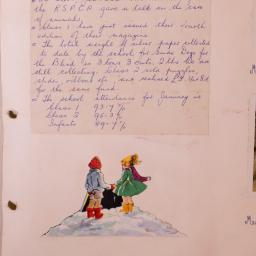 the R.S.P.C.A. gave a talk on the care
of animals.
• Class 1 have just issued their fourth
edition of their magazine.
• The total weight of silver paper collected
to date by the school for Guide Dogs for
the Blind is 3 tons 3 cwts, 2 lbs. We are
still collecting. Class 2 sold puzzles,
slides, ribbons etc. and realised
for the same fund.
• The school attendance for January is
Class 1 93.7 %
Class 2 95.3 %
Infants 89.